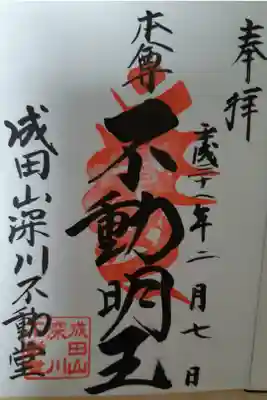 奉拝
平成二十一年二月七日
本尊
不動明王
成田山深川不動堂
成田山
深川